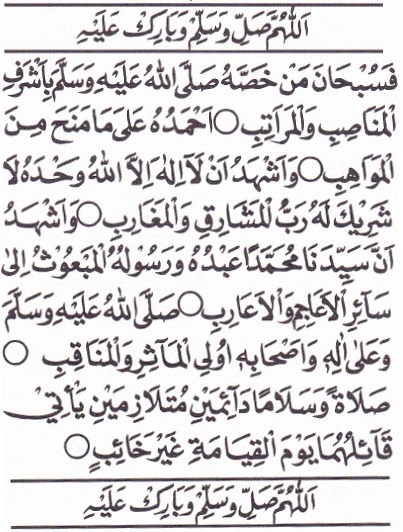 اَللّٰهُمَّ صَلِّ وَسَلِّمْ وَبَارِكْ عَلَيْهِ
فَسُبْحَانَ مَنْ خَصَّهُ صَلَّى اللهُ عَلَيْهِ وَسَلَّمَ بِاَشْرَفِ
الْمَنَاصِبِ وَالْمَرَاتِبِ ○ اَحْمَدُهُ عَلٰى مَا مَنَحَ مِنَ
الْمَوَاهِبِ ○ وَاَشْهَدُ اَنْ لَآ اِلٰهَ اِلَّا اللهُ وَحْدَهُ لَا
شَرِيْكَ لَهُ رَبُّ الْمَشَارِقِ وَالْمَغَارِبِ ○ وَاَشْهَدُ
اَنَّ سَيِّدَنَا مُحَمَّدًا عَبْدُهُ وَرَسُوْلُهُ الْمَبْعُوْثُ اِلٰى
سَآئِرِ الْاَعَاجِمِ وَالْاَعَارِبِ ○ صَلَّى اللهُ عَلَيْهِ وَسَلَّمَ
وَعَلٰى اٰلِهٖ وَاَصْحَابِهٖ اُولِى الْمَآثِرِ وَالْمَنَاقِبِ ○
صَلَاةً وَسَلَامًا دَآئِمَيْنِ مُتَلَازِمَيْنِ يَأْتِيْ
قَآئِلُهُمَا يَوْمَ الْقِيَامَةِ غَيْرَ خَائِبٍ ○
اَللّٰهُمَّ صَلِّ وَسَلِّمْ وَبَارِكْ عَلَيْهِ